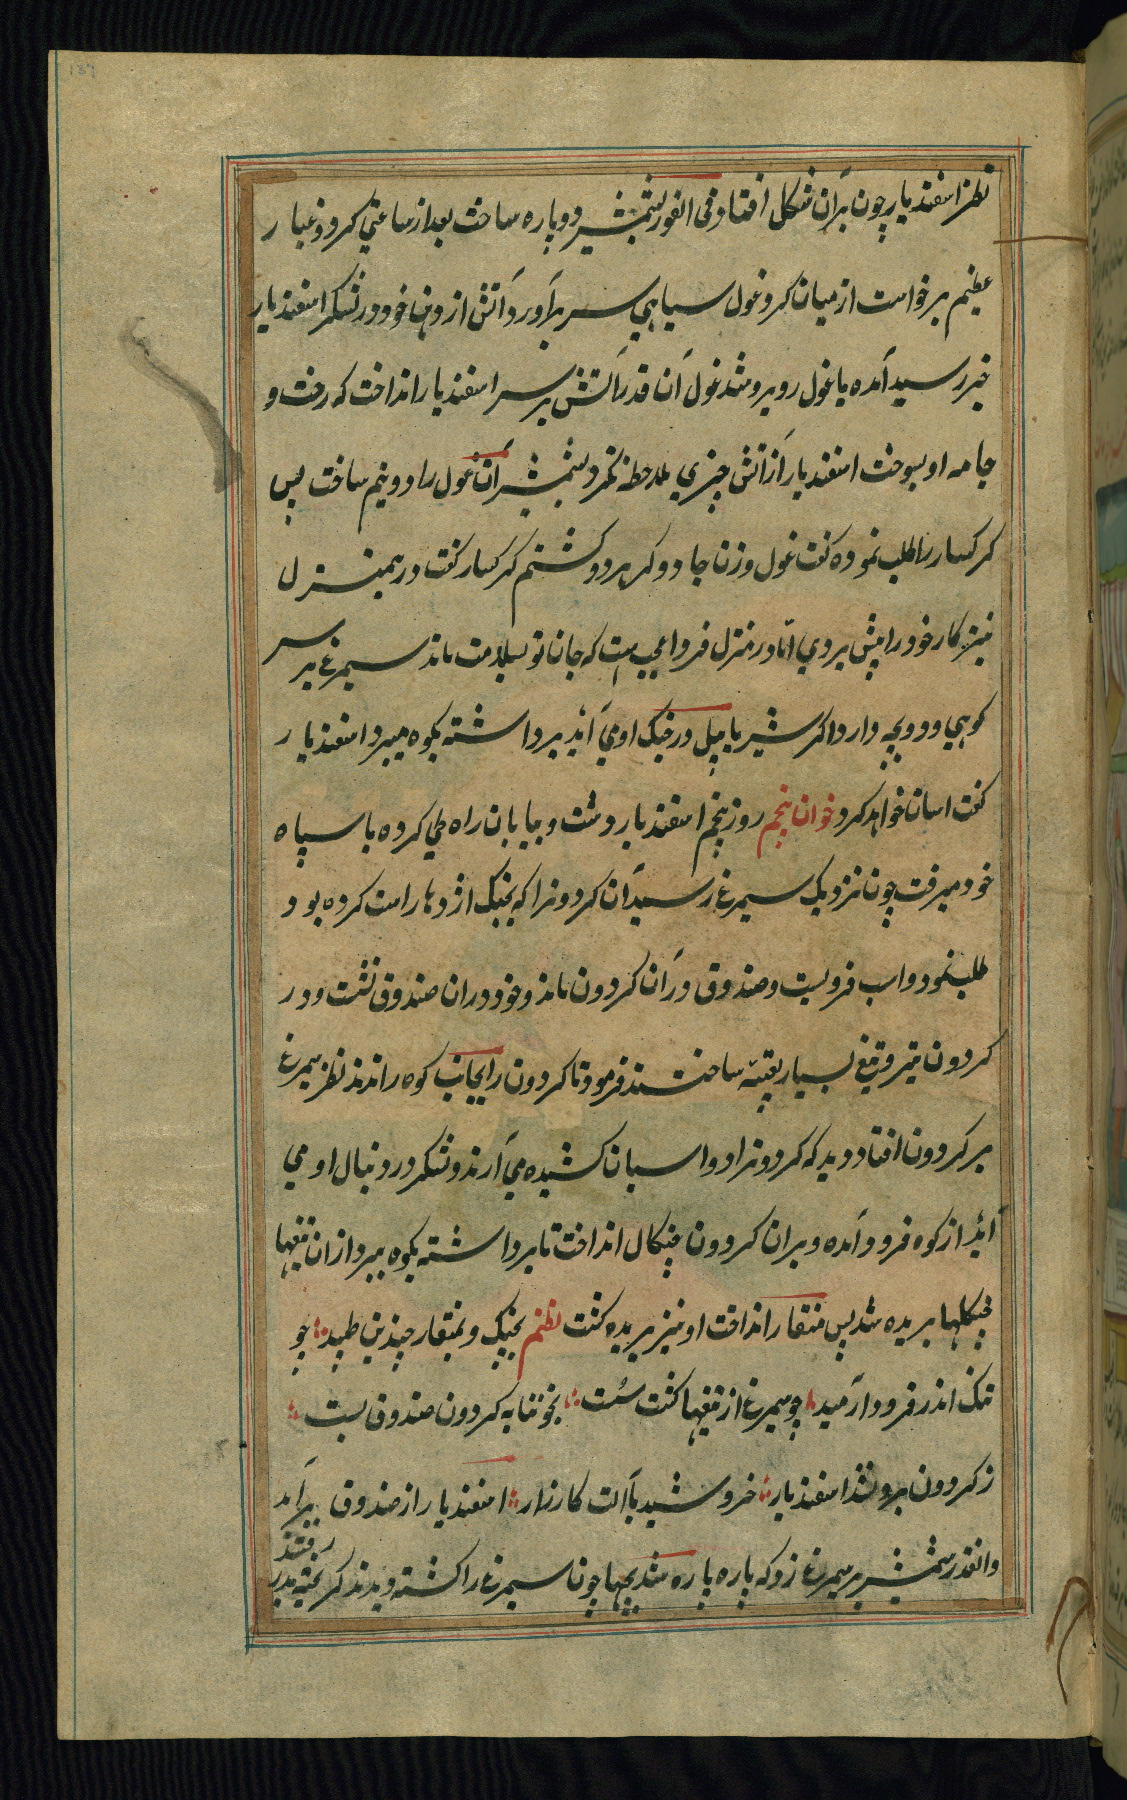 نظر اسفندیار چون بر آن شکل افتاد فی الفور بشمشیر دو پاره ساخت بعد از ساعتی کرد و غبار
عظیم برخواست از میان کرد غول سیاهی سر بر آورد آتش از دهان خود در لشکر اسفندیار
خبر رسید آمده با غول روبرو شد غول آن قدر آتش بر سر اسفندیار انداخت که رخت و
جامه او بسوخت اسفندیار از آتش چیزی ملاحظه نکرد بشمشیر آن غول را دو نیم ساخت پس
کرکسار را طلب نموده کفت غول و زن جادوکر هر دو کشتم کرکسار کفت در همینمنزل
نیز کار خود را پیش بردی امّا در منزل فردا عجبست که جان تو بسلامت ماند سیمرغ بر سر
کوهی و دو بچه دارد اکر شیر یا پیل در جنک او می آید برداشته بکوه میبرد اسفندیار
کفت اسان خواهد کرد خوان پنجم روز پنجم اسفندیار دشت و بیابان راه طی کرده با سپاه
خود میرفت چون نزدیک سیمرغ رسید آن کردونرا که بجنک اژدها راست کرده بود
طلب نمود و اسب فروبست و صندوق در آن کردون ماند و خود در ان صندوق نشست و در
کردون تیر و تیغ بسیار تعبیه ساختند فرمود تا کردون را بجانب کوه راندند نظر سیمرغ
بر کردون افتاد دید که کردونرا دو اسبان کشیده می آرند و لشکر در دنبال او می
آید از کوه فرود آمده و بر ان کردون چنکال انداخت تا برداشته بکوه ببرد از ان تیغها
چنکلها بریده شد پس منقار انداخت او نیز بریده کشت نظم بچنک و بمنقار چندین طپید چو
تنک اندر فرود آرمید چو سیمرغ از تیغها کشت سُست بخونابه کردون صندوق بست
ز کردون برون شد اسفندیار خروشید با آلت کارزار اسفندیار از صندوق برآمد
و انقدر شمشیر بر سیمرغ زد که پاره پاره شد بچها چون سیمرغ را کشته دیدند کریخته بدر رفتند